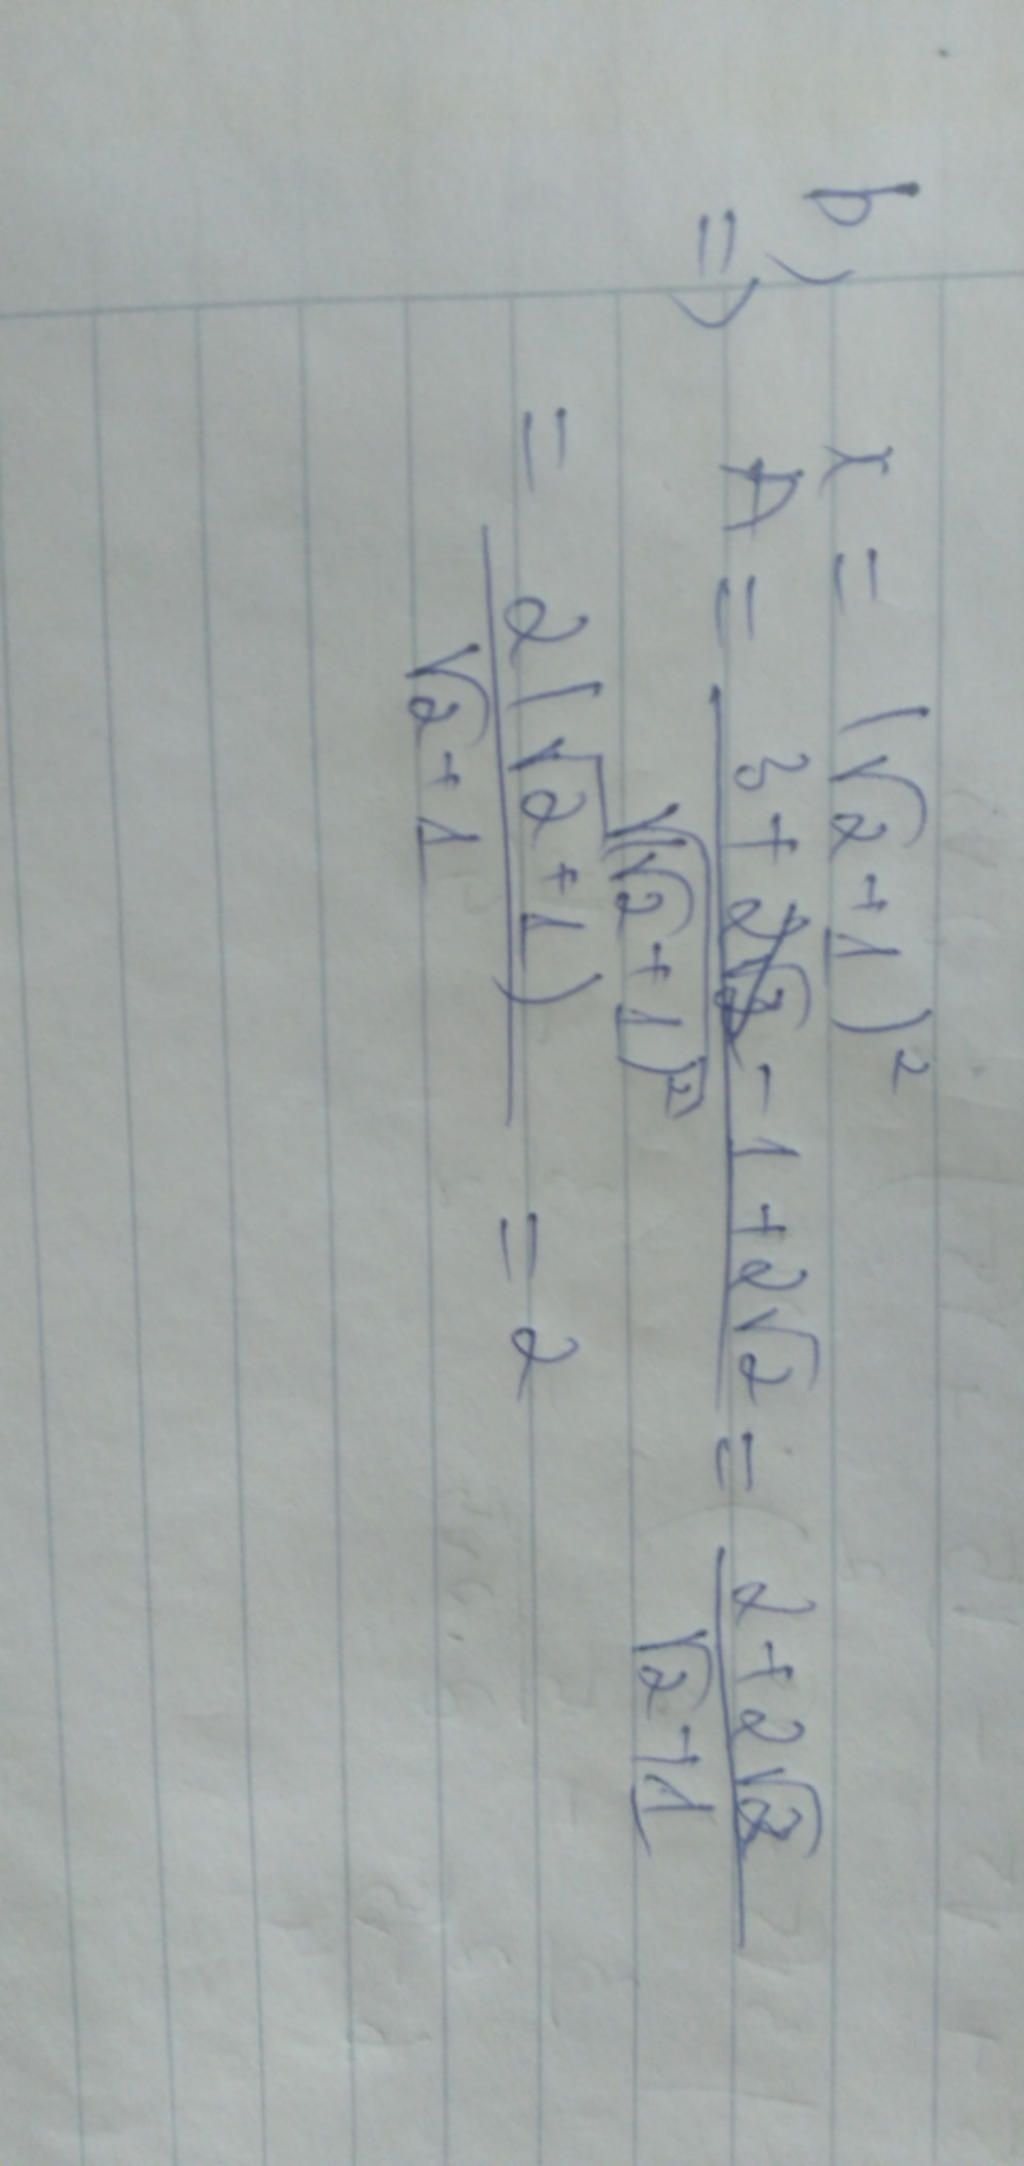 b) x = (√2+1)²
=> A = (3 + 2√2 - 1 + 2√2) / √(√2+1)² = (2+2√2) / (√2+1)
= 2(√2+1) / (√2+1) = 2